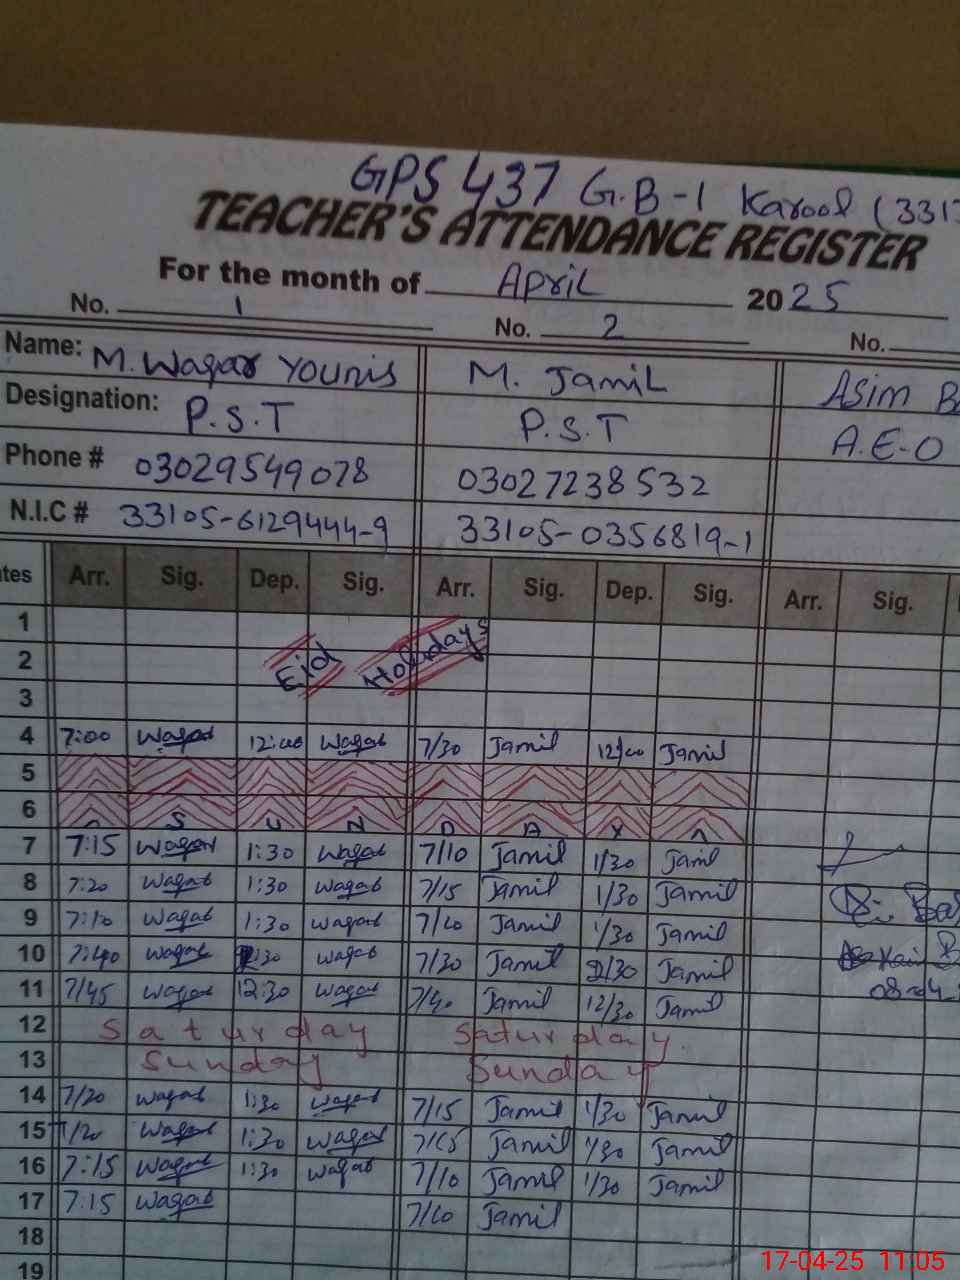 GPS 437 G.B-1 Karool (331
TEACHER'S ATTENDANCE REGISTER
For the month of April 2025
No. 1 No. 2 No.
Name: M. Waqar Younis M. Jamil Asim B
Designation: P.S.T P.S.T A.E.O
Phone # 03029549078 03027238532
N.I.C # 33105-6129444-9 33105-0356819-1
tes Arr. Sig. Dep. Sig. Arr. Sig. Dep. Sig. Arr. Sig.
1
2 Eid Holidays
3
4 7:00 Waqar 12:00 Waqar 7/30 Jamil 12/00 Jamil
5
6 S U N D A Y
7 7:15 Waqar 1:30 Waqar 7/10 Jamil 1/30 Jamil
8 7:20 Waqar 1:30 Waqar 7/15 Jamil 1/30 Jamil
9 7:10 Waqar 1:30 Waqar 7/20 Jamil 1/30 Jamil
10 7:40 Waqar :30 Waqar 7/30 Jamil /30 Jamil
11 7/45 Waqar 12:30 Waqar 7/40 Jamil 12/30 Jamil
12 Saturday Saturday
13 Sunday Sunday
14 7/20 Waqar 1:30 Waqar 7/15 Jamil 1/30 Jamil
15 7/20 Waqar 1:30 Waqar 7/15 Jamil 1/30 Jamil
16 7:15 Waqar 1:30 Waqar 7/10 Jamil 1/30 Jamil
17 7:15 Waqar 7/10 Jamil
18
19
17-04-25 11:05